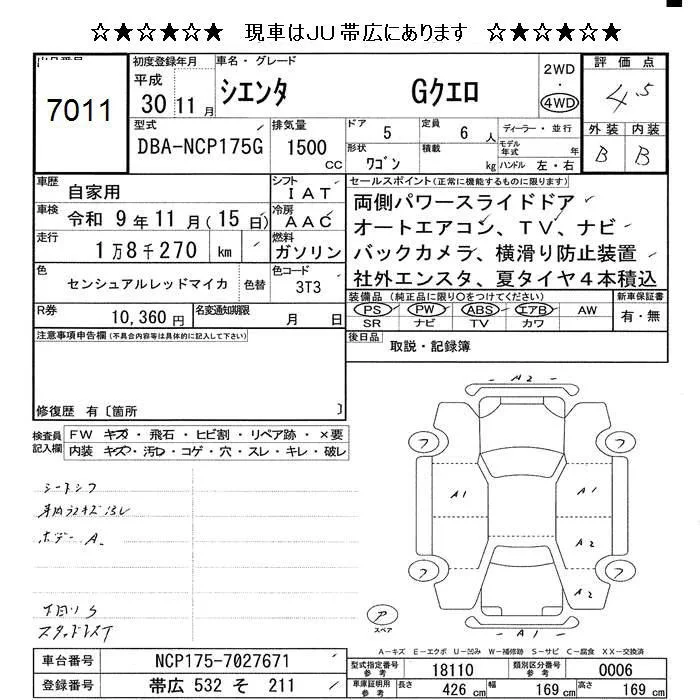 ☆★☆★☆★ 現車はJU帯広にあります ☆★☆★☆★
7011
初度登録年月
平成
30年11月
車名・グレード
シエンタ Gクエロ
2WD
・
4WD
評価点
4.5
外装 内装
B B
型式
DBA-NCP175G
排気量
1500
cc
ドア
5
定員
6人
形状
ワゴン
積載
kg
ディーラー・並行
モデル年式 年
ハンドル 左・右
車歴
自家用
シフト
IAT
車検
令和 9年11月(15日)
冷房
AAC
走行
1万8千270 km
燃料
ガソリン
色
センシュアルレッドマイカ
色替
色コード
3T3
R券
10,360円
名変通知期限
月 日
セールスポイント(正常に機能するものに限ります)
両側パワースライドドア
オートエアコン、TV、ナビ
バックカメラ、横滑り防止装置
社外エンスタ、夏タイヤ4本積込
装備品(純正品に限り○をつけてください)
PS PW ABS エアB AW
SR ナビ TV カワ
新車保証書
有・無
後日品
取説・記録簿
注意事項申告欄(不具合内容等は具体的に記入して下さい)
修復歴 有〔箇所 〕
検査員記入欄
FW キズ・飛石・ヒビ割・リペア跡・×要
内装 キズ・汚レ・コゲ・穴・スレ・キレ・破レ
シートシワ
ボデー A
下回りS
スタッドレスT
A2
フ フ
A1 A1
A2
フ フ
A2
A1
ア
スペア
A-キズ E-エクボ U-凹み W-補修跡 S-サビ C-腐食 XX-交換済
車台番号
NCP175-7027671
登録番号
帯広 532 そ 211
型式指定番号
参考
18110
類別区分番号
参考
0006
車庫証明用
参考
長さ
426 cm
幅
169 cm
高さ
169 cm